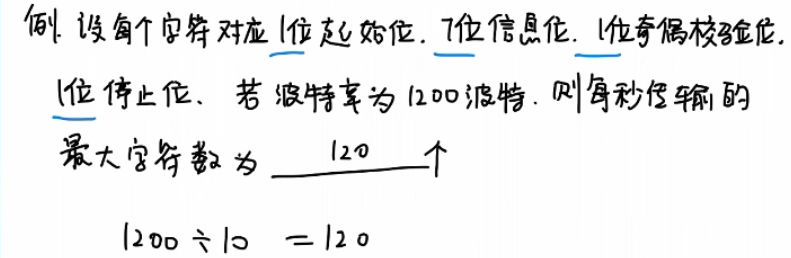 例. 设每个字符对应1位起始位. 7位信息位. 1位奇偶校验位.
1位停止位. 若波特率为1200波特. 则每秒传输的
最大字符数为 120 个
1200÷10 =120